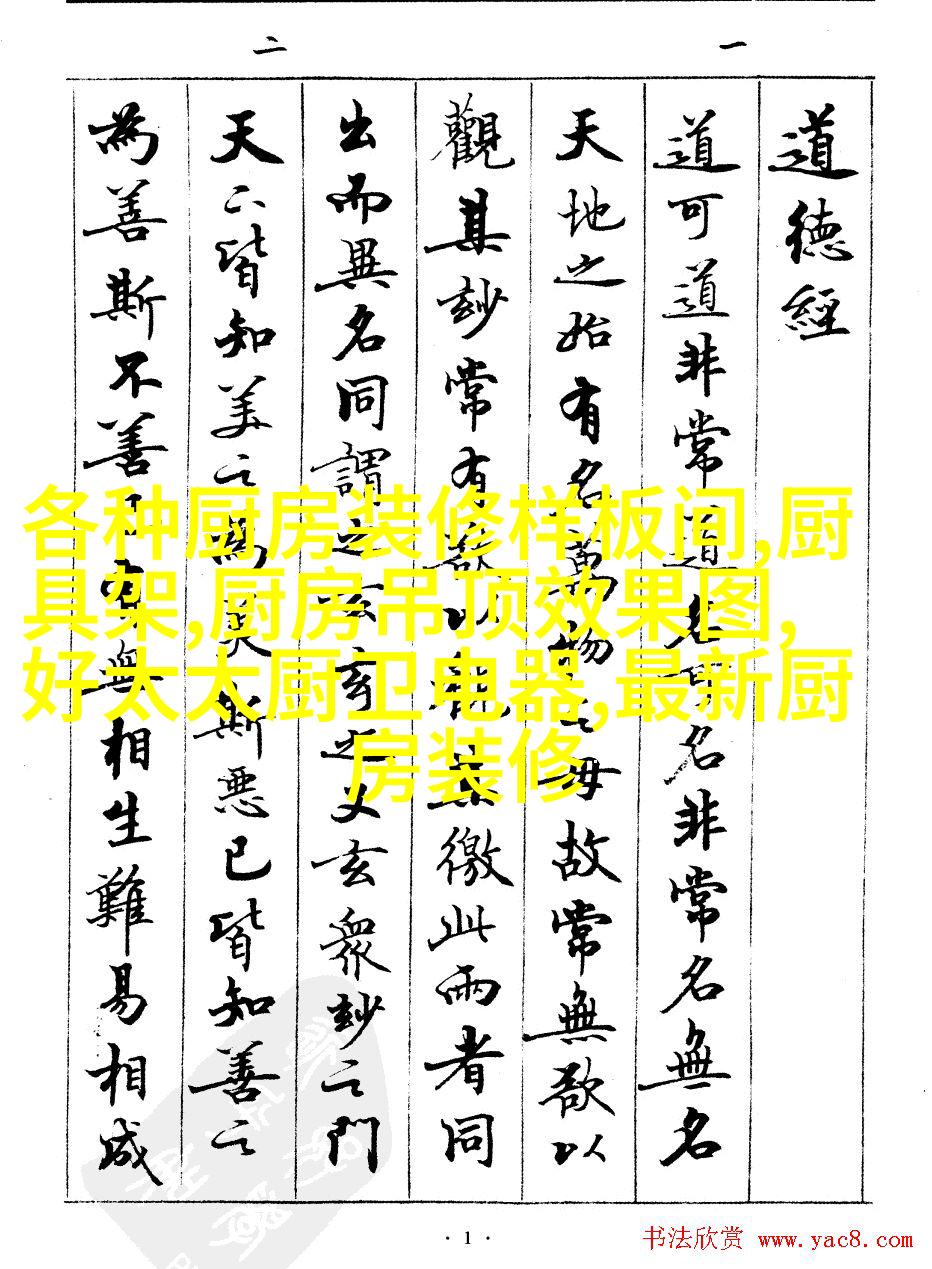 一
二
道德經
道可道非常道名可名非常名無名
天地之始有名萬物之母故常無欲以
觀其玅常有欲以觀其徼此兩者同
出而異名同謂之玄玄之又玄衆玅之門
天下皆知美之為美斯惡已皆知善之
為善斯不善有無相生難易相成
各种厨房装修样板间,厨
具架,厨房吊顶效果图,
好太太厨卫电器,最新厨
房装修
· 1 ·
书法欣赏 www.yac8.com